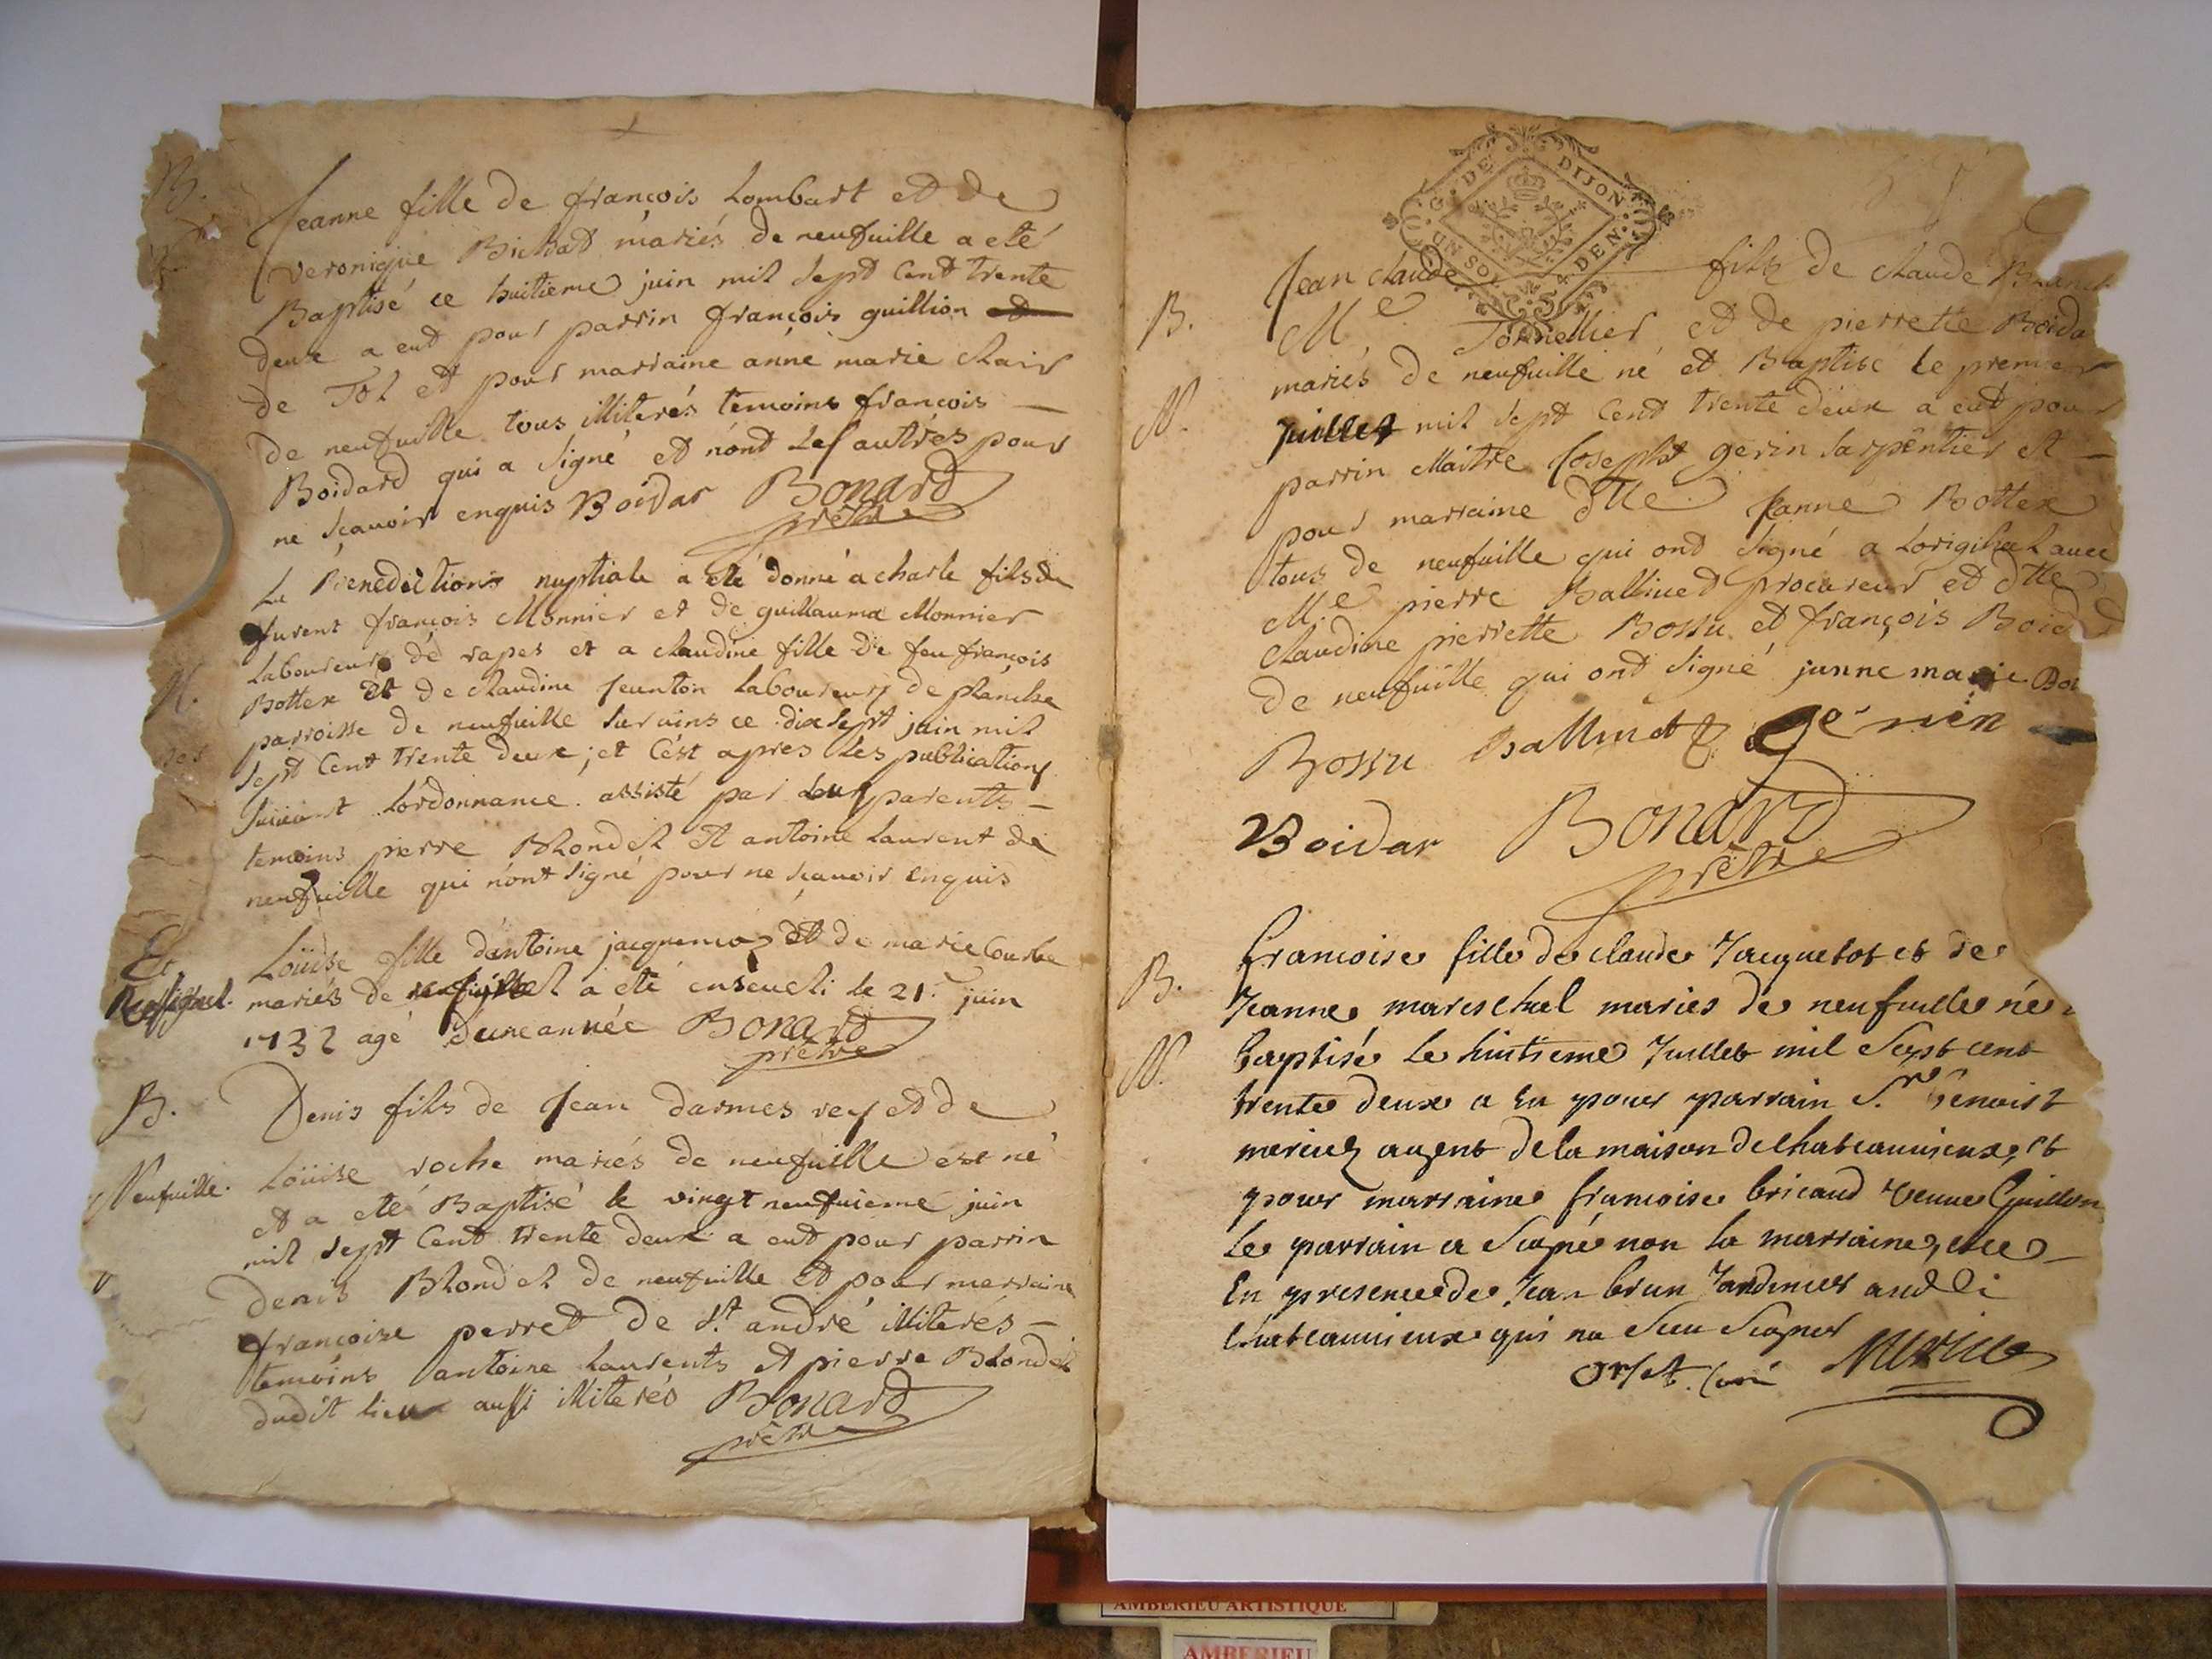 B.
Jeanne fille de françois Lombart et de
veronique Bichat mariés de neufuille a eté
Baptisé ce huitieme juin mil sept Cent trente
deux a eut pour parrin françois guillion
de Tol et pour marraine anne marie Clair
de neufuille tous illiterés temoins françois
Boidard qui a signé et n'ont les autres pour
ne scavoir enquis Boidar Bonard
prêtre
M.
La Benedictions nuptiale a été donné a charle fils de
furent françois Monnier et de guillauma Monnier
Laboureurs de rapes et a claudine fille de feu françois
Bottex et de claudine Jeunton Laboureurs de planche
parroisse de neufuille sur ains ce dix sept juin mil
sept Cent trente deux, et c'ést apres les publications
suivant lordonnance. assisté par leur parents
temoins pierre Blondel et antoine Laurent de
neufuille qui n'ont signé pour ne scavoir enquis
Et
Louise fille dantoine jacquemoz et de marie Courbe
mariés de a eté enseueli le 21e juin
1732 agé d'une année Bonard
prêtre
B.
Denis fils de Jean darmes rey et de
Neufuille.
Louise roche mariés de neufuille est né
et a eté Baptisé le vingt neufuieme juin
mil sept Cent trente deux a eut pour parrin
denis Blondel de neufuille et pour marraine
françoise perret de St. andré illiterés
temoins antoine Laurents et pierre Blondel
dudit lieux aussi illiterés Bonard
prêtre
G. DE DIJON
UN SOL 4 DEN.
Jean claude fils de claude
B.
Me. Tonnellier et de pierrette Boida
mariés de neufuille né et Baptisé le premier
N.
juillet mil sept Cent trente deux a eut pour
parrin Maitre Josepht gerin Carpentier et
pour marraine dlle. Janne Bottex
tous de neufuille qui ont signé a Loriginal avec
Me. pierre Balliuet procureur et dlle
claudine pierrette Bossu et françois Boid
de neufuille qui ont signé janne marie Bot
Bossu Balliuet gerin
Boidar Bonard
prêtre
B.
francoise fille de claude Jacquetot et de
Jeanne mareschal maries de neufuille née
N.
baptisée le huitieme Juillet mil Sept cent
trente deux a eu pour parrain Sr. benoist
meriuz agent de la maison de chateauuieux, et
pour marraine francoise bricaud veuue Guillon
Le parrain a Signé non la marraine, et ce
En presence de Jean brun Jardinier audit
chateauuieux qui na Sceu Signer
orset. Curé